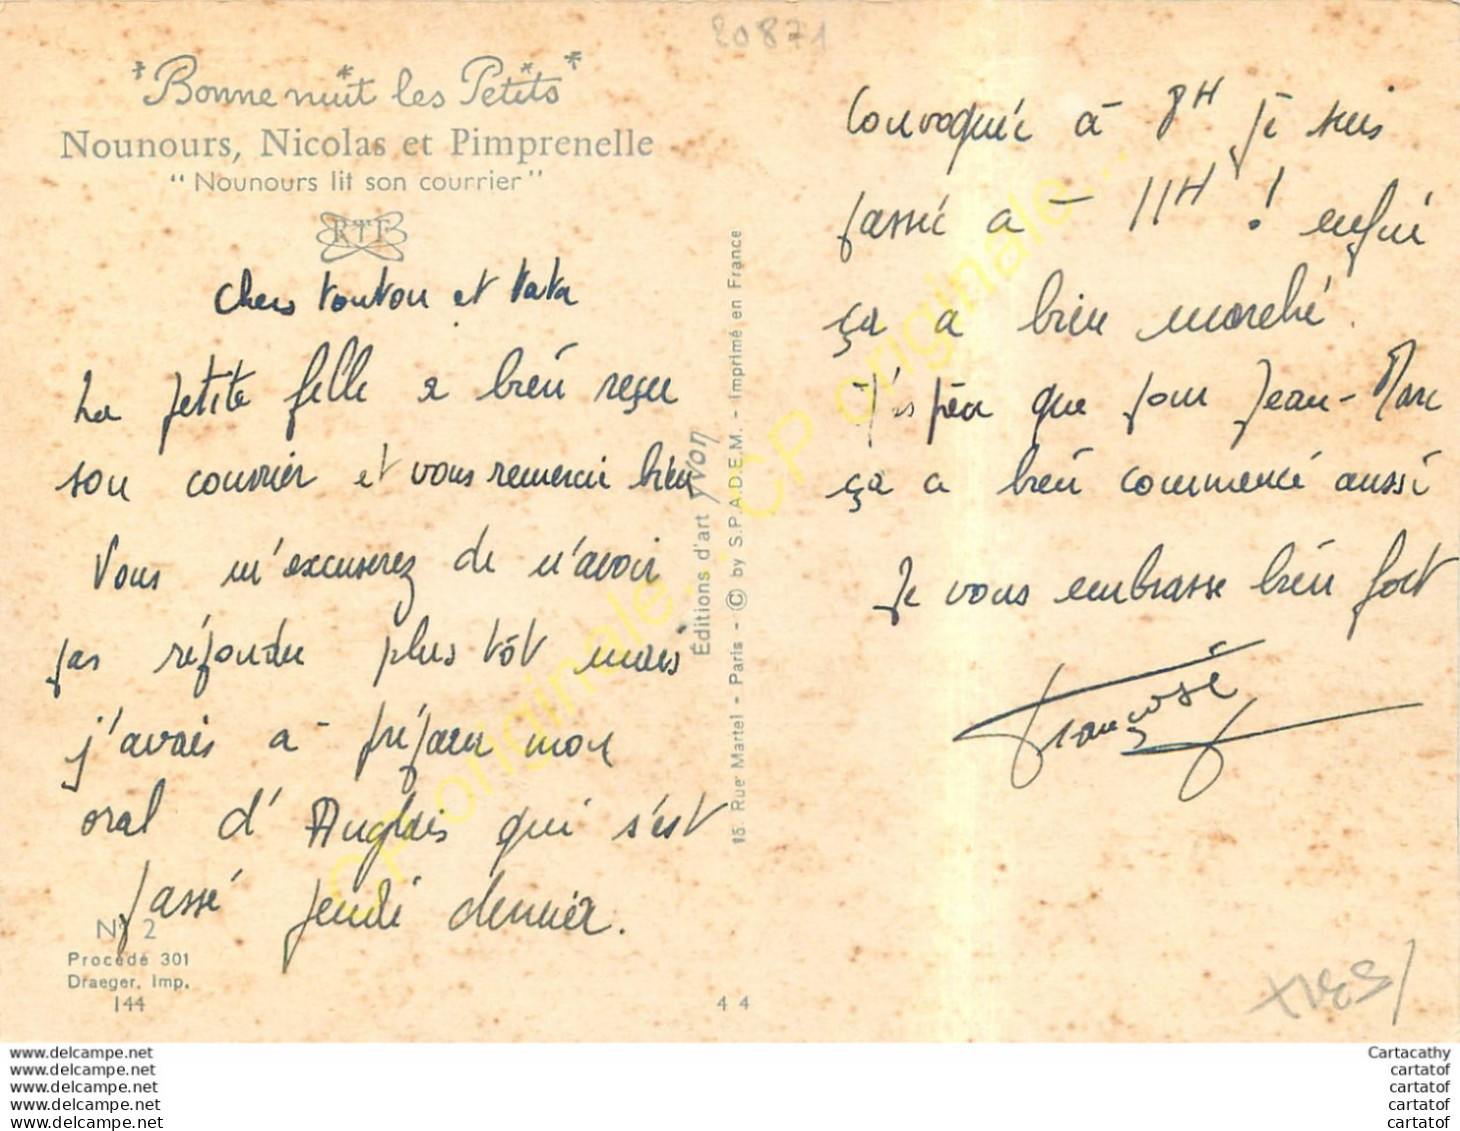 20871
Bonne nuit les Petits
Nounours, Nicolas et Pimprenelle
"Nounours lit son courrier"
RTF
Chers tonton et tata
La petite fille a bien reçu
son courrier et vous remercie bien
Vous m'excuserez de n'avoir
pas répondu plus tôt mais
j'avais à préparer mon
oral d'Anglais qui s'est
passé jeudi dernier.
N° 2
Procédé 301
Draeger, Imp.
144
44
Éditions d'art Yvon
15, Rue Martel - Paris - © by S.P.A.D.E.M. - Imprimé en France
Convoquée à 8H je suis
passée à 11H ! enfin
ça a bien marché.
J'espère que pour Jean-Marc
ça a bien commencé aussi
Je vous embrasse bien fort
Françoise
CP originale...
CP originale...
www.delcampe.net
www.delcampe.net
www.delcampe.net
www.delcampe.net
www.delcampe.net
Cartacathy
cartatof
cartatof
cartatof
cartatof